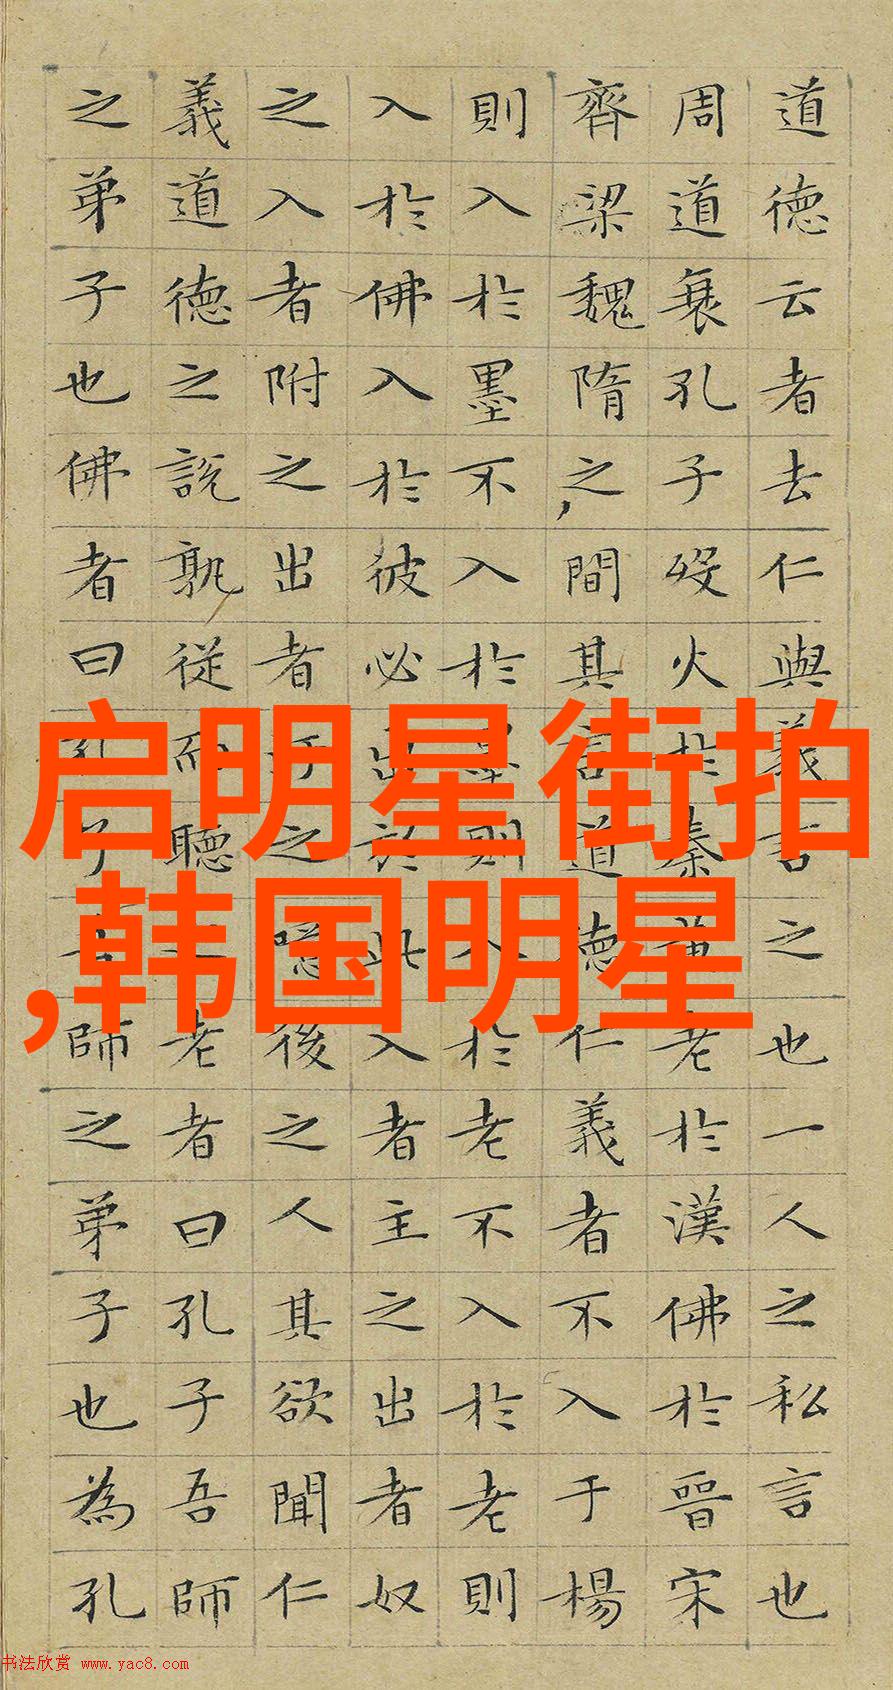 道德云者去仁與義言之也一人之私言也
周道衰孔子歿火於秦黃老於漢佛於晉宋
齊梁魏隋之間其言道德仁義者不入于楊
則入於墨不入於墨則入於老不入於老則
入於佛入於彼必出於此入者主之出者奴
之入者附之出者汙之噫後之人其欲聞仁
義道德之説孰從而聽之老者曰孔子吾師
之弟子也佛者曰孔子吾師之弟子也為孔
启明星街拍
,韩国明星
书法欣赏 www.yac8.com